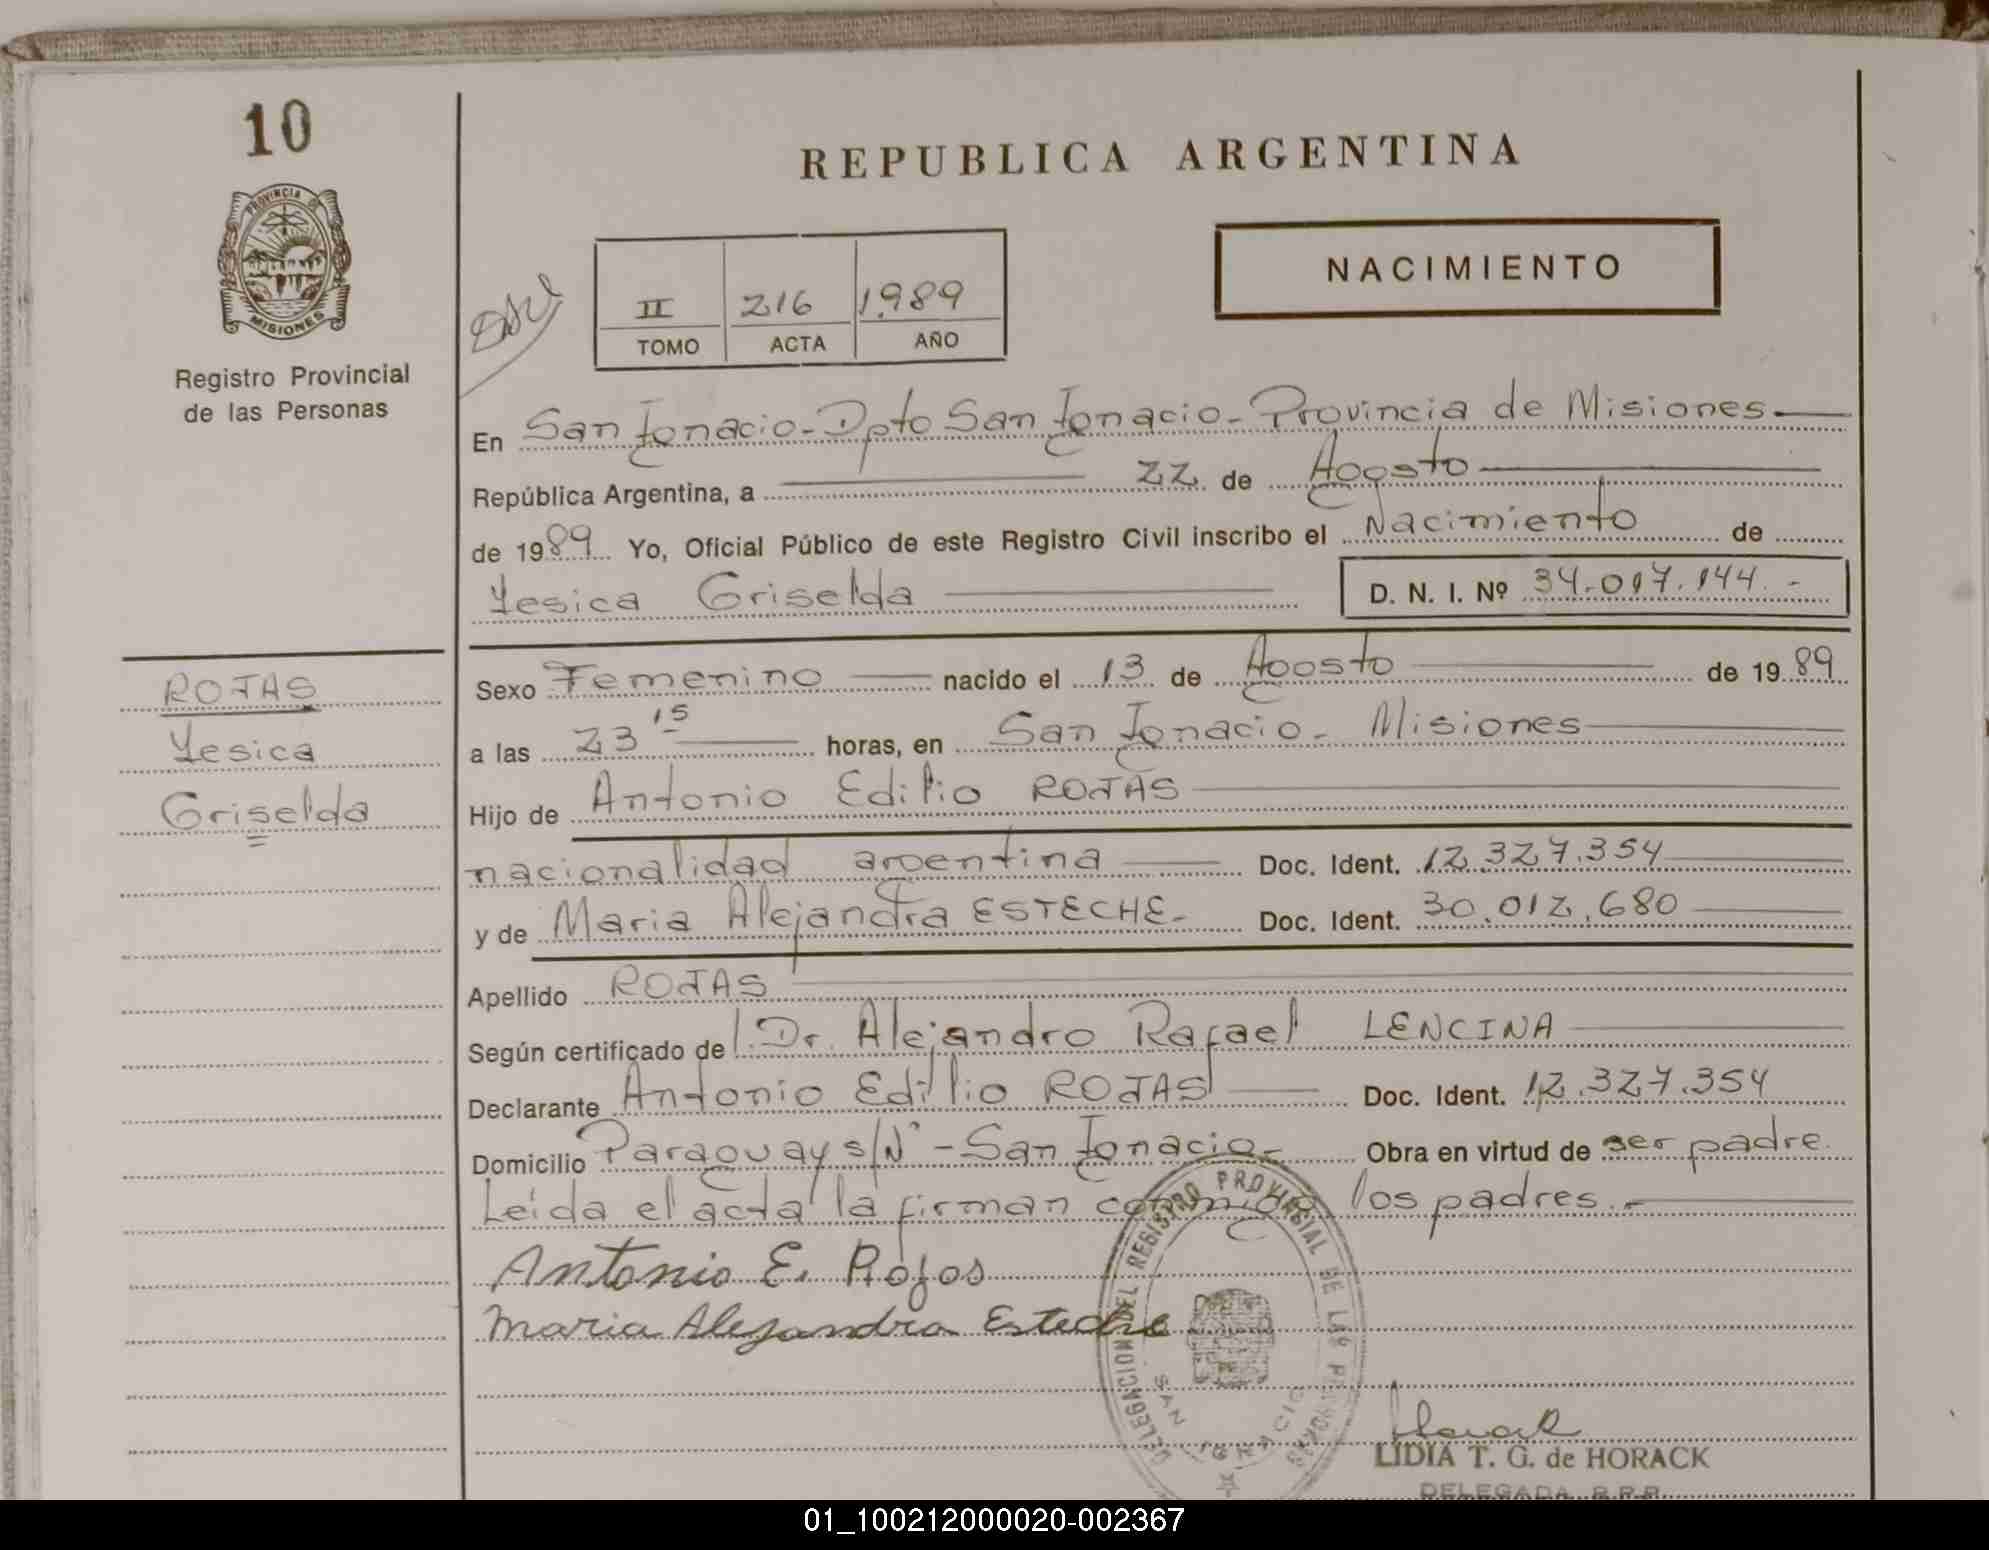 10
PROVINCIA DE
MISIONES
Registro Provincial
de las Personas
REPUBLICA ARGENTINA
NACIMIENTO
II 216 1.989
TOMO ACTA AÑO
En San Ignacio - Dpto San Ignacio - Provincia de Misiones.
República Argentina, a 22 de Agosto
de 1989 Yo, Oficial Público de este Registro Civil inscribo el Nacimiento de
Yesica Griselda D. N. I. Nº 34.017.144.-
ROJAS
Yesica
Griselda
Sexo Femenino nacido el 13 de Agosto de 1989
a las 23 15 horas, en San Ignacio - Misiones
Hijo de Antonio Edilio ROJAS
nacionalidad argentina Doc. Ident. 12.327.354
y de Maria Alejandra ESTECHE.- Doc. Ident. 30.012.680
Apellido ROJAS
Según certificado del Dr. Alejandro Rafael LENCINA
Declarante Antonio Edilio ROJAS Doc. Ident. 12.327.354
Domicilio Paraguay s/Nº - San Ignacio - Obra en virtud de ser padre.
Leída el acta la firman conmigo los padres.-
Antonio E. Rojas
Maria Alejandra Esteche
DELEGACION DEL REGISTRO PROVINCIAL DE LAS PERSONAS
SAN IGNACIO
LIDIA T. G. de HORACK
DELEGADA R.P.P.
01_100212000020-002367